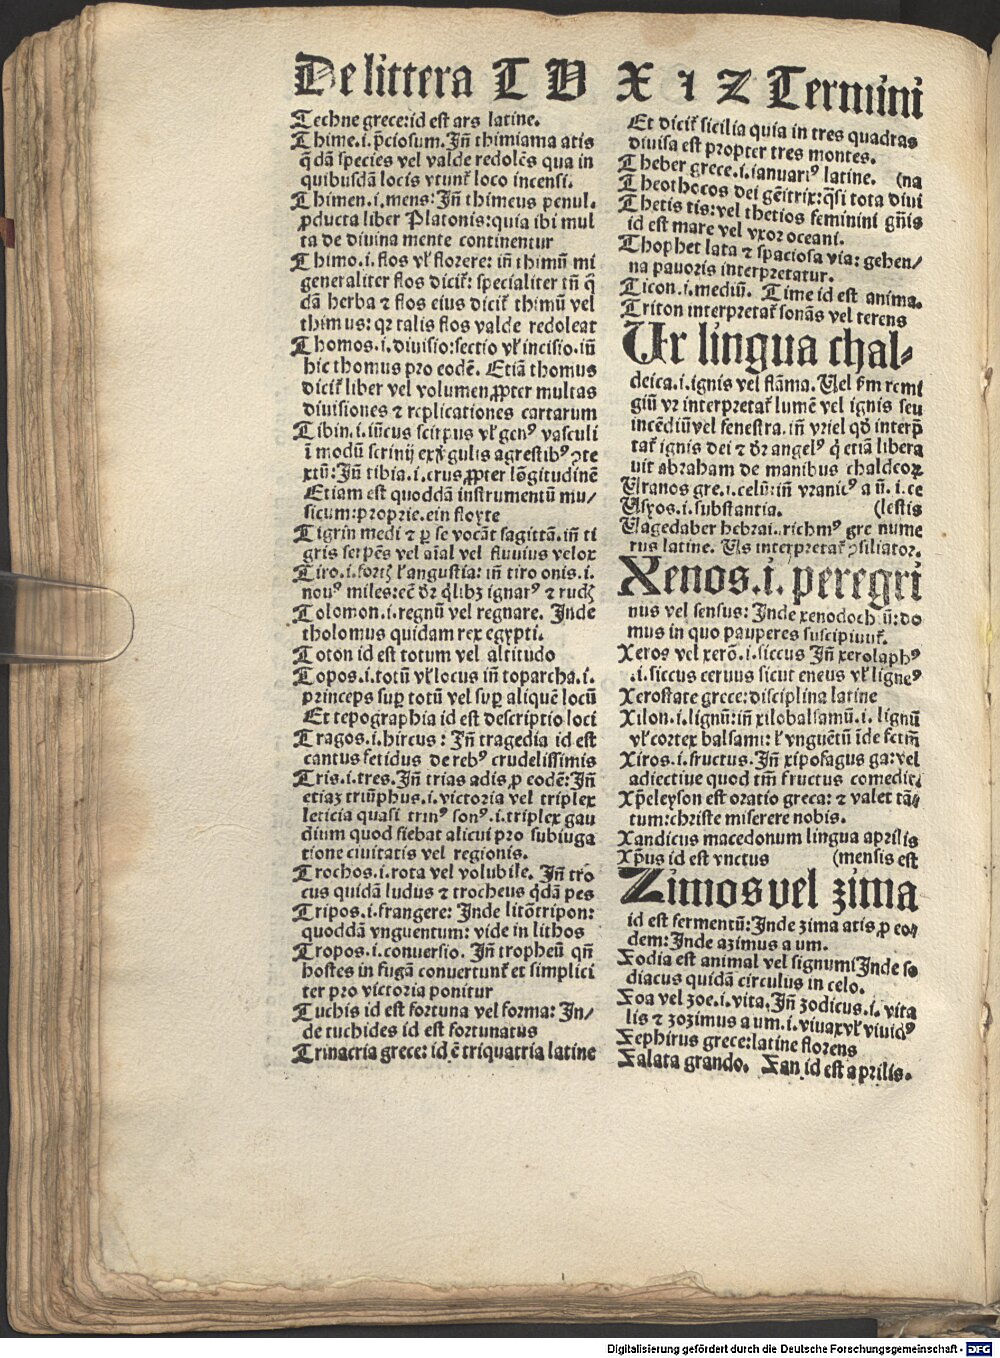 De littera T V X 1 Z Termini
Techne grece:id est ars latine.
Thime.i.p̄ciosum. Jn̄ thimiama atis
q̄dā species vel valde redolēs qua in
quibusdā locis vtunt᷑ loco incensi.
Thimen.i.mens: Jn̄ thimeus penul⸗
ꝓducta liber Platonis:quia ibi mul
ta de diuina mente continentur
Thimo.i.flos vł florere: in̄ thimū mi
generaliter flos dicit᷑: specialiter in̄ q̄
dā herba ⁊ flos eius dicit᷑ thimū vel
thimus: qꝛ talis flos valde redoleat
Thomos.i.diuisio:sectio vł incisio.in̄
hic thomus pro eodē. Etiā thomus
dicit᷑ liber vel volumen ꝓpter multas
diuisiones ⁊ replicationes cartarum
Tibin.i.iūcus scirpus vł genꝰ vasculi
ī modū scrinij ex v̓gulis agrestibꝰ ꝯte
xtū: Jn̄ tibia.i.crus ꝓpter lōgitudinē
Etiam est quoddā instrumentū mu⸗
sicum:proprie.ein floyte
Tigrin medi ⁊ ꝑ se vocāt sagittā.in̄ ti
gris serpēs vel aīal vel fluuius velox
Tiro.i.fortꝭ ł angustia: in̄ tiro onis.i.
nouꝰ miles:ec̄ dr̄ qḷibꝫ ignarꝰ ⁊ rudꝭ
Tolomon.i.regnū vel regnare. Jnde
tholomus quidam rex egypti.
Toton id est totum vel altitudo
Topos.i.totū vł locus in̄ toparcha.i.
princeps suꝑ totū vel suꝑ aliquē locū
Et topographia id est descriptio loci
Tragos.i.hircus: Jn̄ tragedia id est
cantus fetidus de rebꝰ crudelissimis
Tris.i.tres. Jn̄ trias adis ꝓ eodē: Jn̄
etiaꝫ triūphus.i.victoria vel triplex
leticia quasi trinꝰ sonꝰ.i.triplex gau
dium quod fiebat alicui pro subiuga
tione ciuitatis vel regionis.
Trochos.i.rota vel volubile. Jn̄ tro
cus quidā ludus ⁊ trocheus q̄dā pes
Tripos.i.frangere: Jnde litōtripon:
quoddā vnguentum: vide in lithos
Tropos.i.conuersio. Jn̄ tropheū qn̄
hostes in fugā conuertunt᷑ et simplici
ter pro victoria ponitur
Tuchis id est fortuna vel forma: Jn⸗
de tuchides id est fortunatus
Trinacria grece: id ē triquatria latine
Et dicit᷑ sicilia quia in tres quadras
diuisa est propter tres montes.
Theber grece.i.ianuariꝰ latine. (na
Theothocos dei gēitrix:q̄si tota diui
Thetis tis:vel thetios feminini gn̄is
id est mare vel vxor oceani.
Thophet lata ⁊ spaciosa via: gehen⸗
na pauoris interpretatur.
Ticon.i.mediū. Time id est anima.
Triton interpretat᷑ sonās vel terens
Ur lingua chal⸗
deica.i.ignis vel flāma. Vel ẜm remi
giū vr interpretat᷑ lumē vel ignis seu
incēdiū vel fenestra. in̄ vriel qd̓ interp̄
tat᷑ ignis dei ⁊ dr̄ angelꝰ q̇ etiā libera
uit abraham de manibus chaldeoꝝ
Vranos gre.i.celū:in̄ vranicꝰ a ū.i.ce
Vsyos.i.substantia. (lestis
Vagedaber hebrai.richmꝰ gre nume
rus latine. Vs interpretat᷑ ꝯsiliator.
Xenos.i.peregri
nus vel sensus: Jnde xenodochiū:do
mus in quo pauperes suscipiunt᷑.
Xeros vel xerō.i.siccus Jn̄ xerolaphꝰ
.i.siccus ceruus sicut eneus vł ligneꝰ
Xerostate grece:disciplina latine
Xilon.i.lignū:in̄ xilobalsamū.i.lignū
vł cortex balsami: ł vnguētū īde fctm̄
Xiros.i.fructus. Jn̄ xipofagus ga:vel
adiectiue quod tm̄ fructus comedit.
Xp̄eleyson est oratio greca: ⁊ valet tā⸗
tum:christe miserere nobis.
Xandicus macedonum lingua aprilis
Xp̄us id est vnctus (mensis est
Zimos vel zima
id est fermentū: Jnde zima atis ꝓ eo⸗
dem: Jnde azimus a um.
Zodia est animal vel signum Jnde so
diacus quidā circulus in celo.
Zoa vel zoe.i.vita. Jn̄ zodicus.i.vita
lis ⁊ zozimus a um.i.viuax vł viuidꝰ
Zephirus grece:latine florens
Zalata grando. Zan id est aprilis.
Digitalisierung gefördert durch die Deutsche Forschungsgemeinschaft - DFG